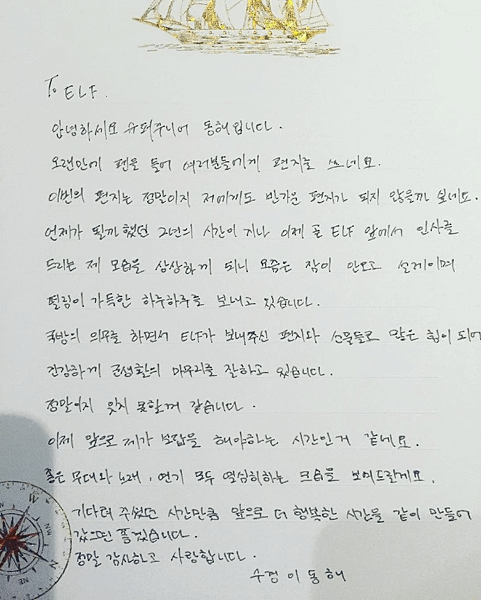 To ELF.
안녕하세요 슈퍼주니어 동해입니다.
오랜만에 펜을 들어 여러분들에게 편지를 쓰네요.
이번의 편지는 정말이지 저에게도 반가운 편지가 되지 않을까 싶네요.
언제가 될까 했던 2년의 시간이 지나 이제 곧 ELF 앞에서 인사를
드리는 제 모습을 상상하게 되니 요즘은 잠이 안오고 설레이며
떨림이 가득한 하루하루를 보내고 있습니다.
국방의 의무를 하면서 ELF가 보내주신 편지와 선물들로 많은 힘이 되어
건강하게 군생활의 마무리를 잘하고 있습니다.
정말이지 잊지 못할꺼 같습니다.
이제 앞으로 제가 보답을 해야하는 시간인거 같네요.
좋은 무대와 노래, 연기 모두 열심히하는 모습을 보여드릴게요.
기다려 주셨던 시간만큼 앞으로 더 행복한 시간을 같이 만들어
갔으면 좋겠습니다.
정말 감사하고 사랑합니다.
수경 이동해
N
W
E
S